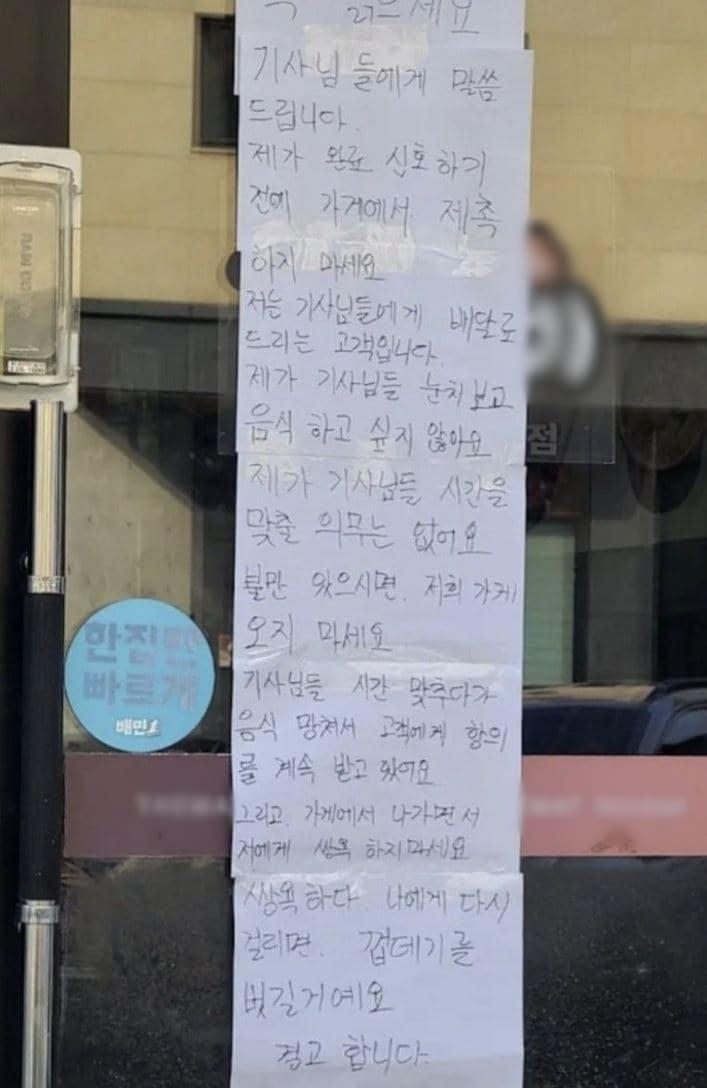 읽으세요
기사님들에게 말씀
드립니다.
제가 완료 신호하기
전에 가게에서 제촉
하지 마세요
저는 기사님들에게 배달료
드리는 고객입니다.
제가 기사님들 눈치보고
음식 하고 싶지 않아요
제가 기사님들 시간을
맞출 의무는 없어요
불만 있으시면. 저희 가게
오지 마세요
기사님들 시간 맞추다가
음식 망쳐서 고객에게 항의
를 계속 받고 있어요
그리고. 가게에서 나가면서
저에게 쌍욕 하지마세요
쌍욕하다. 나에게 다시
걸리면. 껍데기를
벗길거예요
경고 합니다.
점
한집만
빠르게
배민1